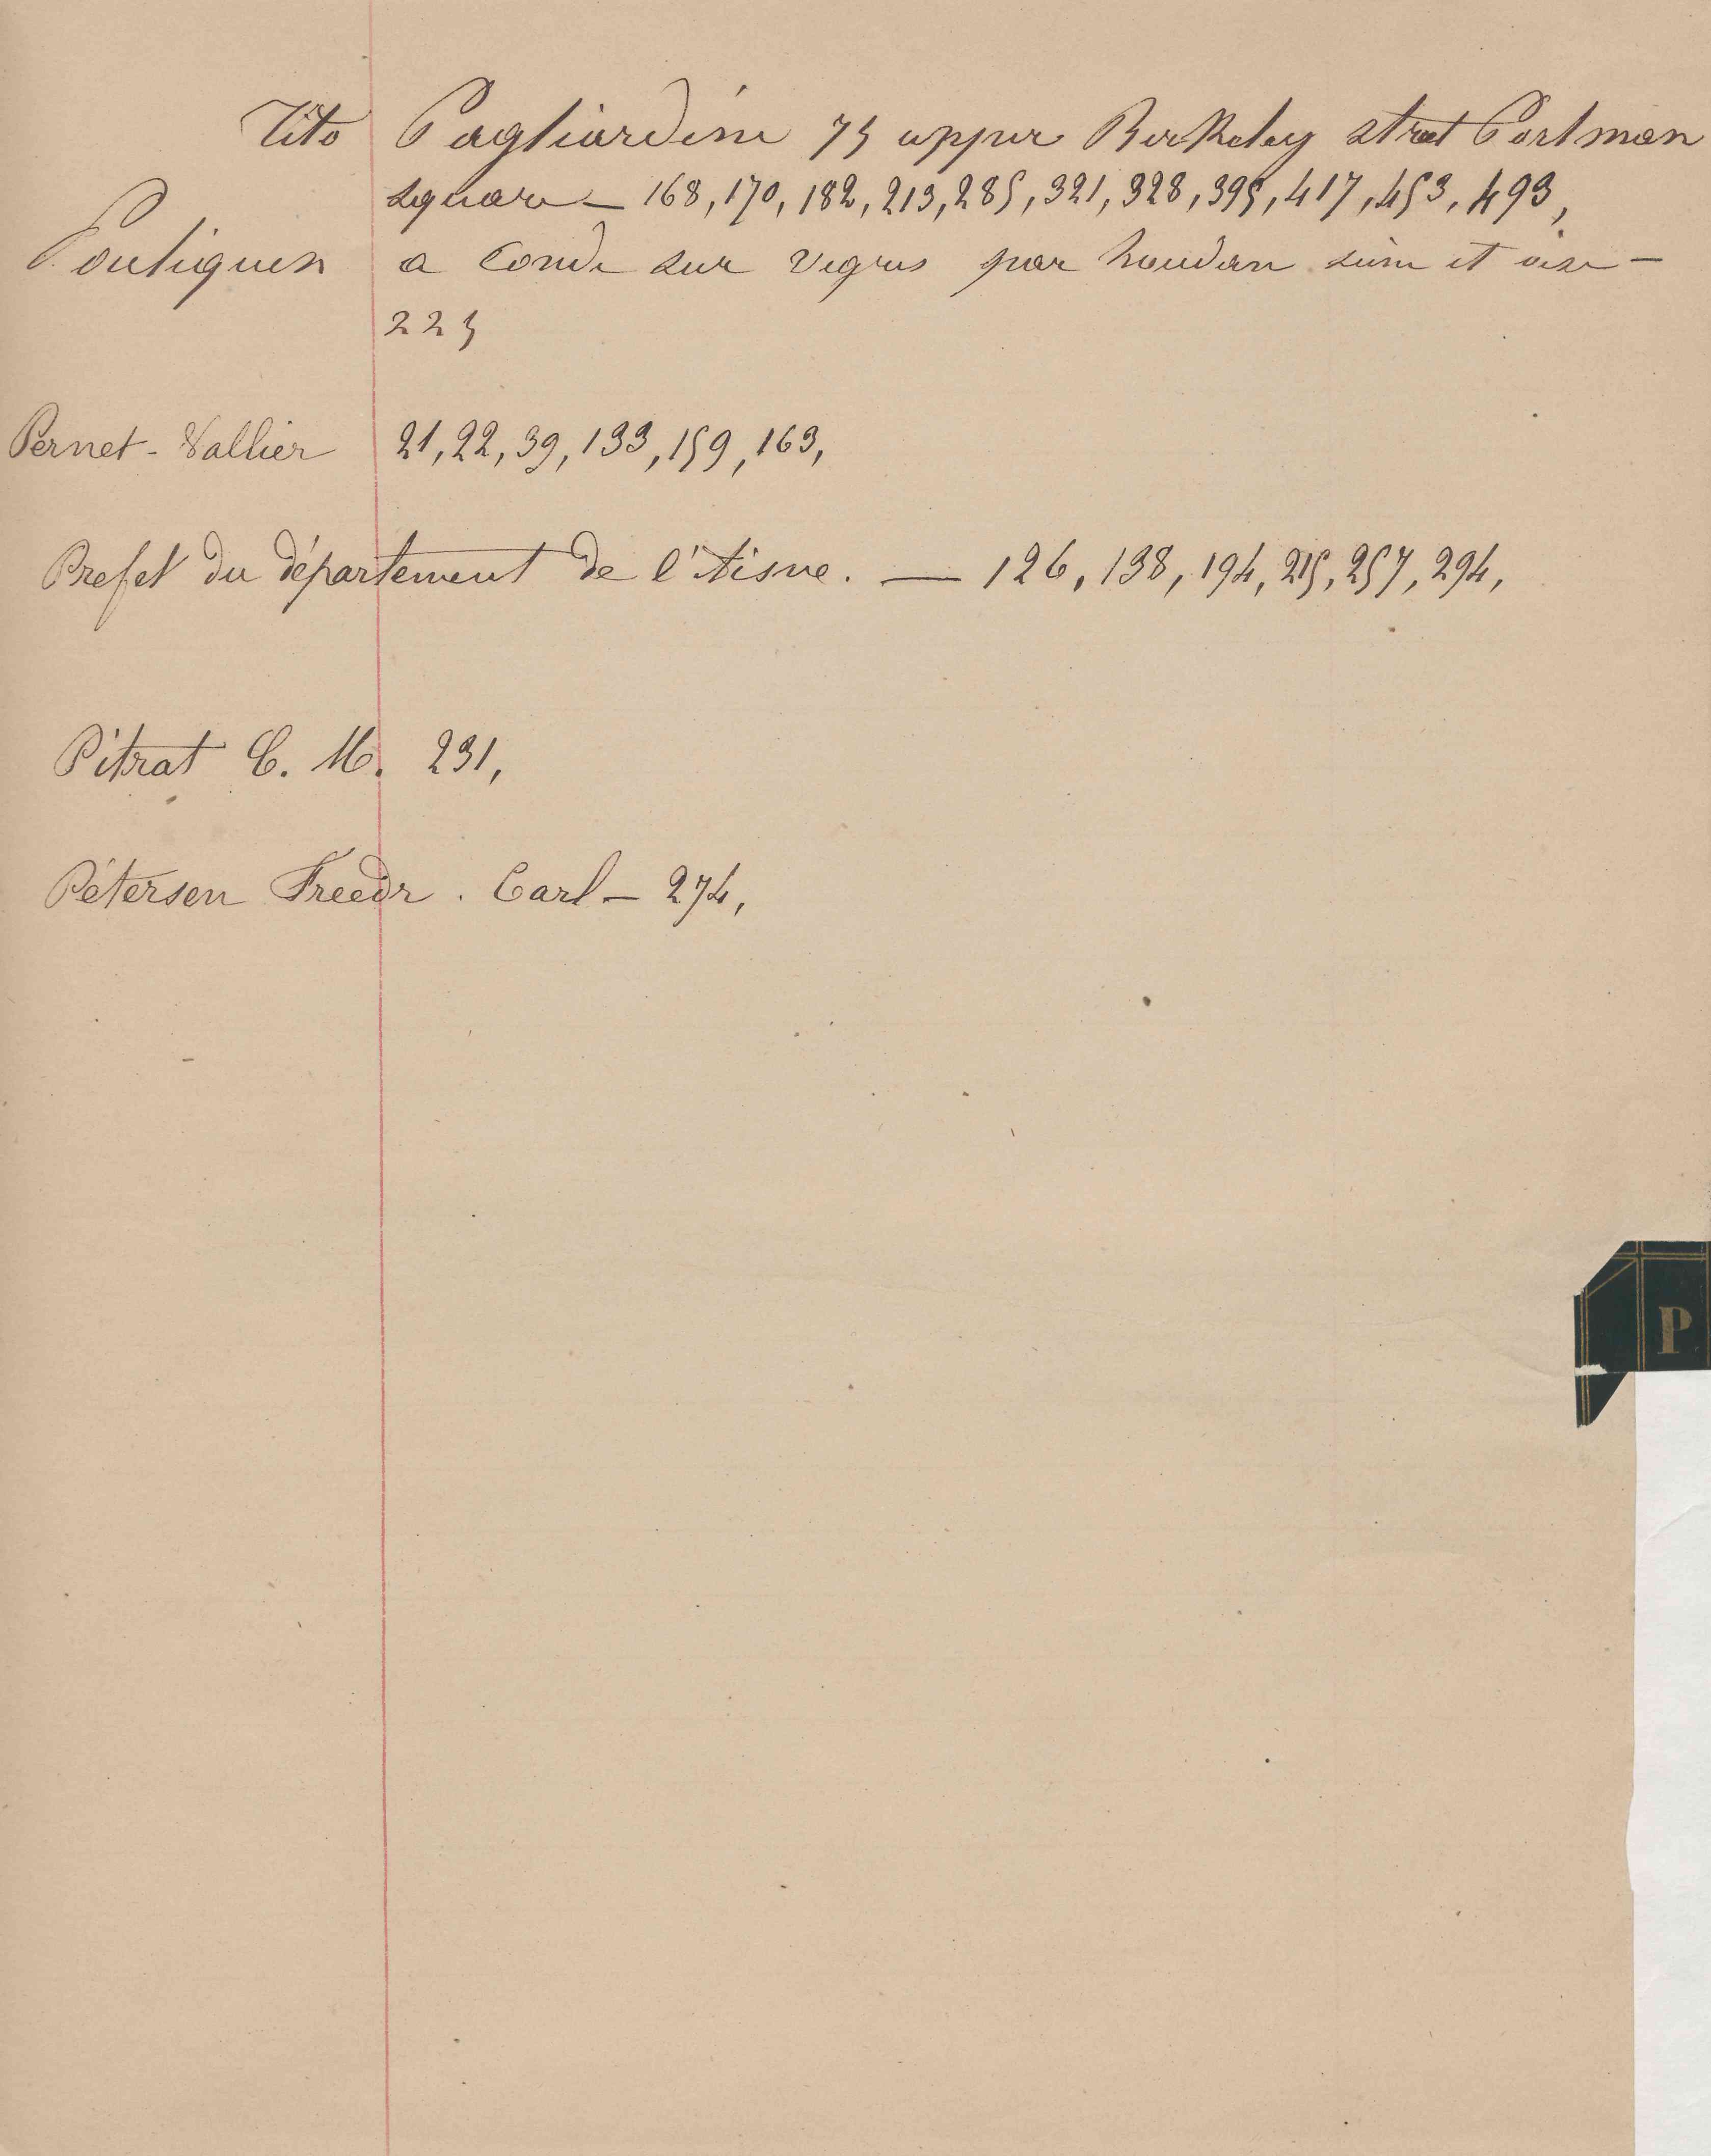 Tito Pagliardini 75 upper Berkeley street Portman
square — 168, 170, 182, 213, 285, 321, 328, 395, 417, 453, 493,
Poutiguen a Conde sur Vegres par houdan seine et oise —
225
Pernet - Vallier 21, 22, 39, 133, 159, 163,
Prefet du département de l'Aisne. — 126, 138, 194, 215, 257, 294,
Pitrat C. M. 231,
Pétersen Freedr. Carl — 274,
P